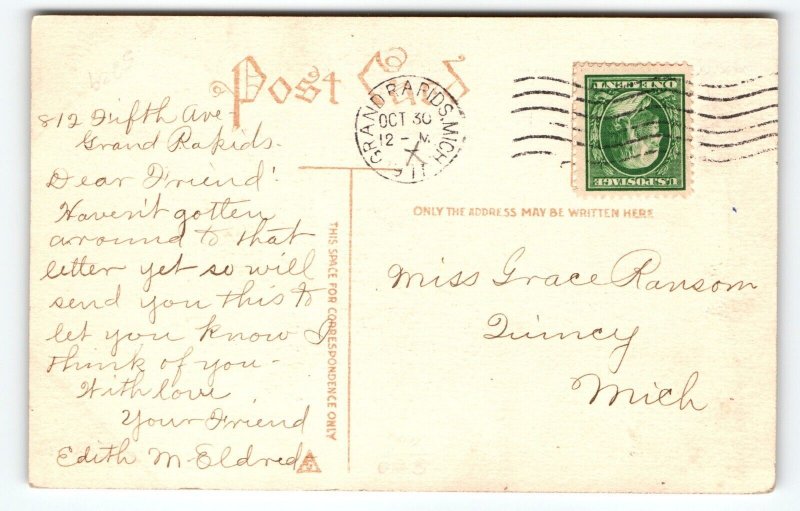 Post Card
812 Fifth Ave-
Grand Rapids.
Dear Friend!
Haven't gotten
arround to that
letter yet so will
send you this to
let you know I
think of you-
With love
Your Friend
Edith M. Eldred
THIS SPACE FOR CORRESPONDENCE ONLY
GRAND RAPIDS, MICH.
OCT 30
12 - M
X
U.S. POSTAGE
ONE CENT
ONLY THE ADDRESS MAY BE WRITTEN HERE
Miss Grace Ransom
Quincy
Mich